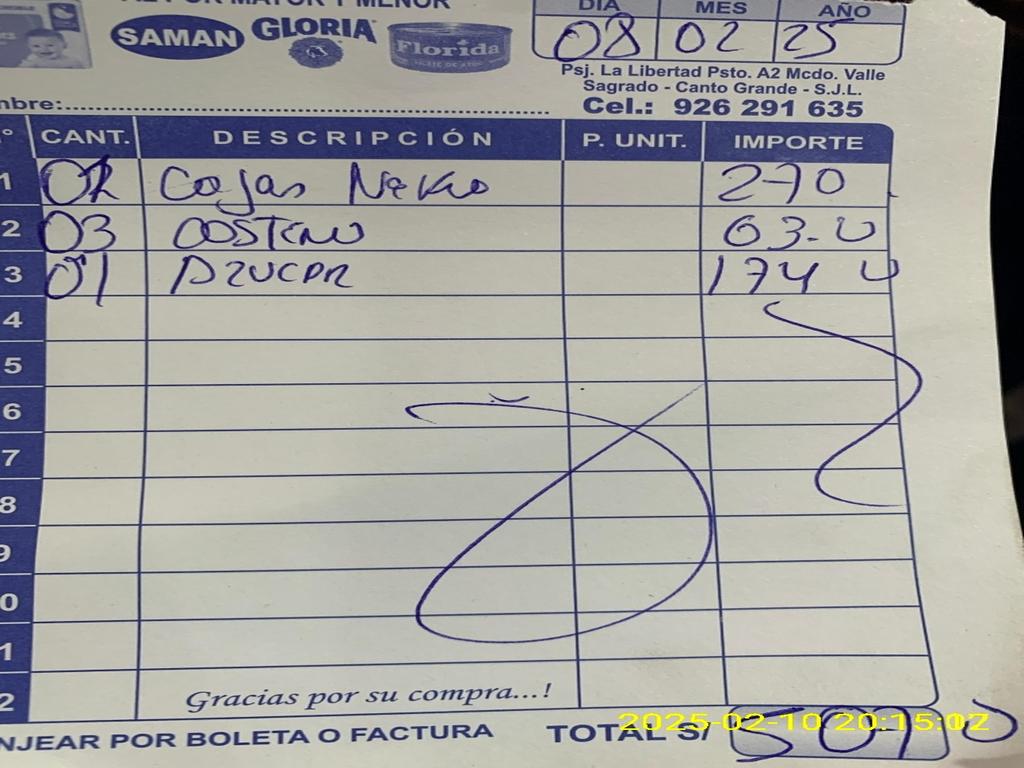 AL POR MAYOR Y MENOR
SAMAN GLORIA Florida
DIA MES AÑO
08 02 25
Psj. La Libertad Psto. A2 Mcdo. Valle
Sagrado - Canto Grande - S.J.L.
Cel.: 926 291 635
mbre:
CANT. DESCRIPCIÓN P. UNIT. IMPORTE
1 02 Cajas 270
2 03 COSTEÑO 63.0
3 01 AZUCAR 174 0
4
5
6
7
8
9
0
1
2
Gracias por su compra...!
NJEAR POR BOLETA O FACTURA TOTAL S/ 507 0
2025-02-10 20:15:02